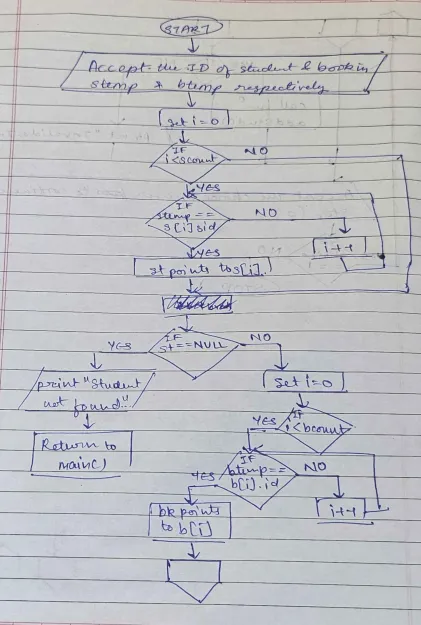 START
Accept the ID of student & book in
stemp & btemp respectively
Set i=0
IF
i<scount
NO
YES
IF
stemp==
s[i].sid
NO
i++
YES
st points to s[i].
IF
st==NULL
YES
NO
print "Student
not found"
Return to
main()
Set i=0
IF
i<bcount
YES
IF
btemp==
b[i].id
YES
NO
i++
bk points
to b[i]